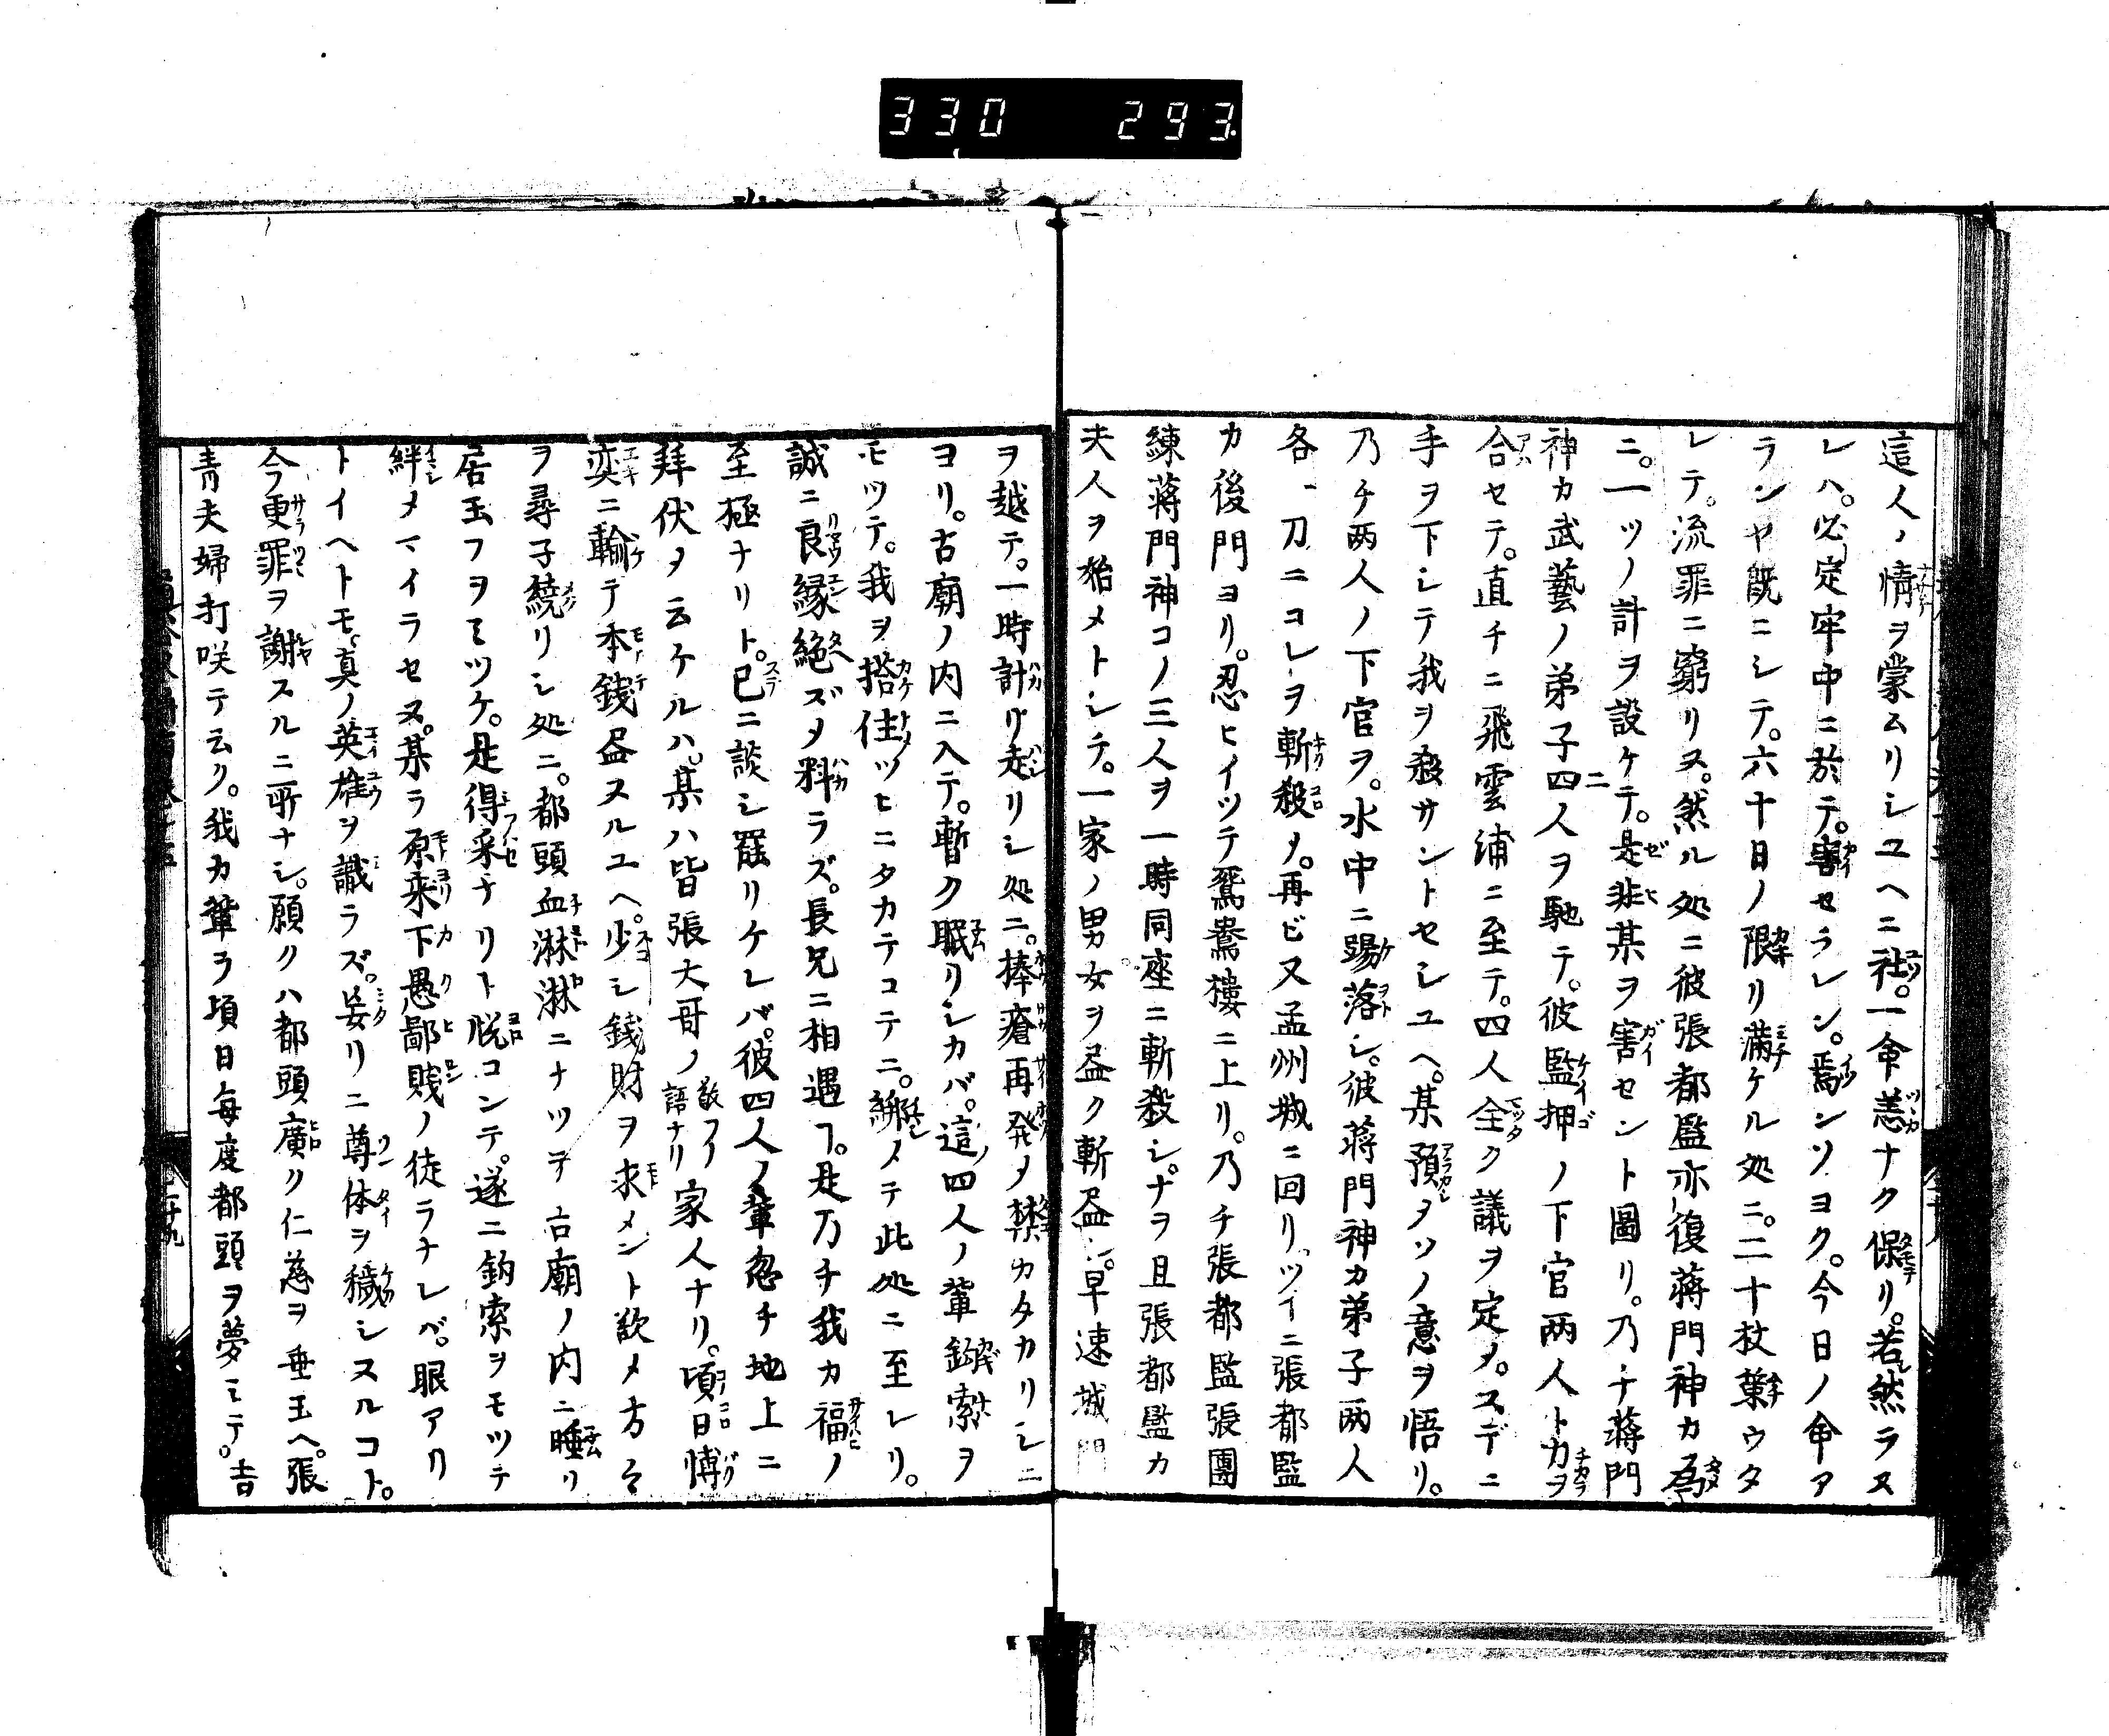 330 293.
這人ノ情ヲ蒙ムリシユヘニ社。一命恙ナク保リ。若然ラス
レハ。必定牢中ニ於テ。害セラレン。焉ンソヨク。今日ノ命ア
ランヤ既ニシテ。六十日ノ限リ満ケル処ニ。二十杖棄ウタ
レテ。流罪ニ窮リヌ。然ル処ニ彼張都監亦復蒋門神カ為
ニ。一ツノ計ヲ設ケテ。是非某ヲ害セント圖リ。乃チ蒋門
神カ武藝ノ弟子四人ヲ馳テ。彼監押ノ下官两人ト力ヲ
合セテ。直チニ飛雲浦ニ至テ。四人全ク議ヲ定メ。スデニ
手ヲ下シテ我ヲ殺サントセシユヘ。某預メソノ意ヲ悟リ。
乃チ两人ノ下官ヲ。水中ニ踢落シ。彼蒋門神カ弟子两人
各一刀ニコレヲ斬殺メ。再ビ又孟州城ニ回リ。ツイニ張都監
カ後門ヨリ。忍ヒイツテ鴛鴦樓ニ上リ。乃チ張都監張團
練蒋門神コノ三人ヲ一時同座ニ斬殺シ。ナヲ且張都監カ
夫人ヲ始メトシテ。一家ノ男女ヲ盡ク斬盡シ。早速城門
ヲ越テ。一時計リ走リシ処ニ。棒瘡再発メ禁カタカリシニ
ヨリ。古廟ノ内ニ入テ。暫ク眠リシカバ。這四人ノ輩鈎索ヲ
モツテ。我ヲ搭住ツヒニタカテコテニ。綁メテ此処ニ至レリ。
誠ニ良縁絶ズメ料ラズ。長兄ニ相遇フ。是乃チ我カ福ノ
至極ナリト。已ニ談シ罷リケレバ。彼四人ノ輩忽チ地上ニ
拜伏メ云ケルハ。某ハ皆張大哥ノ敬フノ語ナリ家人ナリ。頃日博
奕ニ輸テ本銭盡ヌルユヘ。少シ銭財ヲ求メント欲メ方々
ヲ尋子繞リシ処ニ。都頭血淋淋ニナツテ古廟ノ内ニ睡リ
居玉フヲミツケ。是得采ナリト悦コンテ。遂ニ鈎索ヲモツテ
絆メマイラセヌ。某ラ原来下愚鄙賤ノ徒ラナレバ。眼アリ
トイヘトモ。真ノ英雄ヲ識ラズ。妄リニ尊体ヲ穢シヌルコト。
今更罪ヲ謝スルニ所ナシ。願クハ都頭廣ク仁慈ヲ垂玉ヘ。張
青夫婦打咲テ云ク。我カ輩ラ頃日毎度都頭ヲ夢ミテ。吉